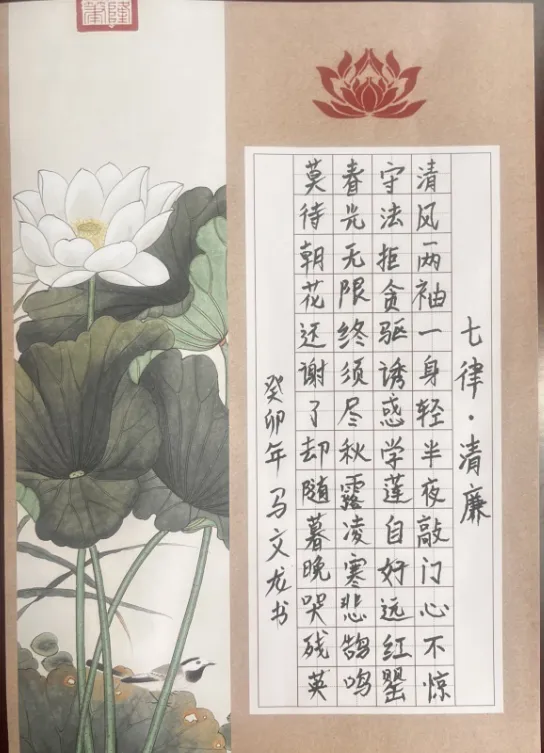 七律·清廉
清风两袖一身轻半夜敲门心不惊
守法拒贪驱诱惑学莲自好远红罂
春光无限终须尽秋露凌寒悲鹄鸣
莫待朝花还谢了却随暮晚哭残英
癸卯年 马文龙书